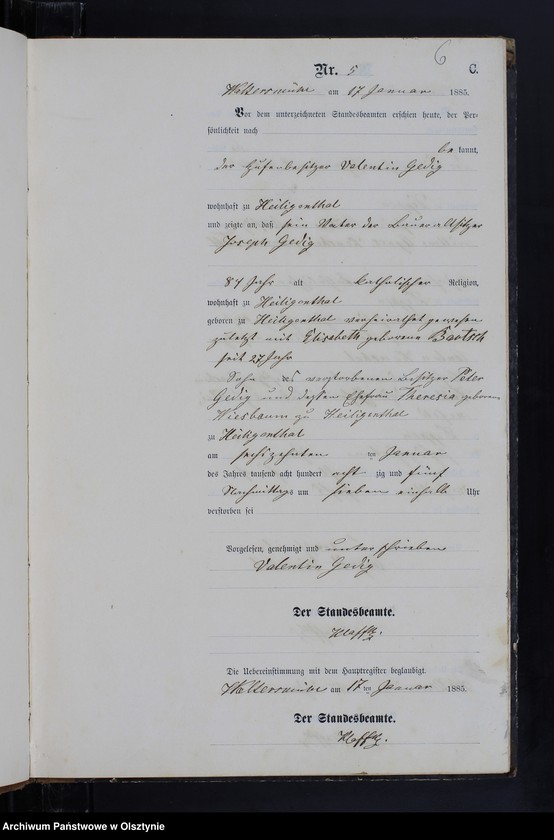 6
Nr. 5 C.
Woltersmühl am 17 Januar 1885.
Vor dem unterzeichneten Standesbeamten erschien heute, der Per-
sönlichkeit nach
be kannt,
der Hufenbesitzer Valentin Gedig
wohnhaft zu Heiligenthal
und zeigte an, daß sein Vater der Baueraltsitzer
Joseph Gedig
87 Jahr alt katholischer Religion,
wohnhaft zu Heiligenthal
geboren zu Heiligenthal verheirathet gewesen
zuletzt mit Elisabeth geborene Bartsch
seit 27 Jahr
Sohn des verstorbenen Besitzer Peter
Gedig und dessen Ehefrau Theresia geborene
Wiesbaum zu Heiligenthal
zu Heiligenthal
am sechszehnten ten Januar
des Jahres tausend acht hundert acht zig und fünf
Nachmittags um sieben einhalb Uhr
verstorben sei
Vorgelesen, genehmigt und unterschrieben
Valentin Gedig
Der Standesbeamte.
Die Uebereinstimmung mit dem Hauptregister beglaubigt.
Woltersmühl am 17 ten Januar 1885.
Der Standesbeamte.
Archiwum Państwowe w Olsztynie